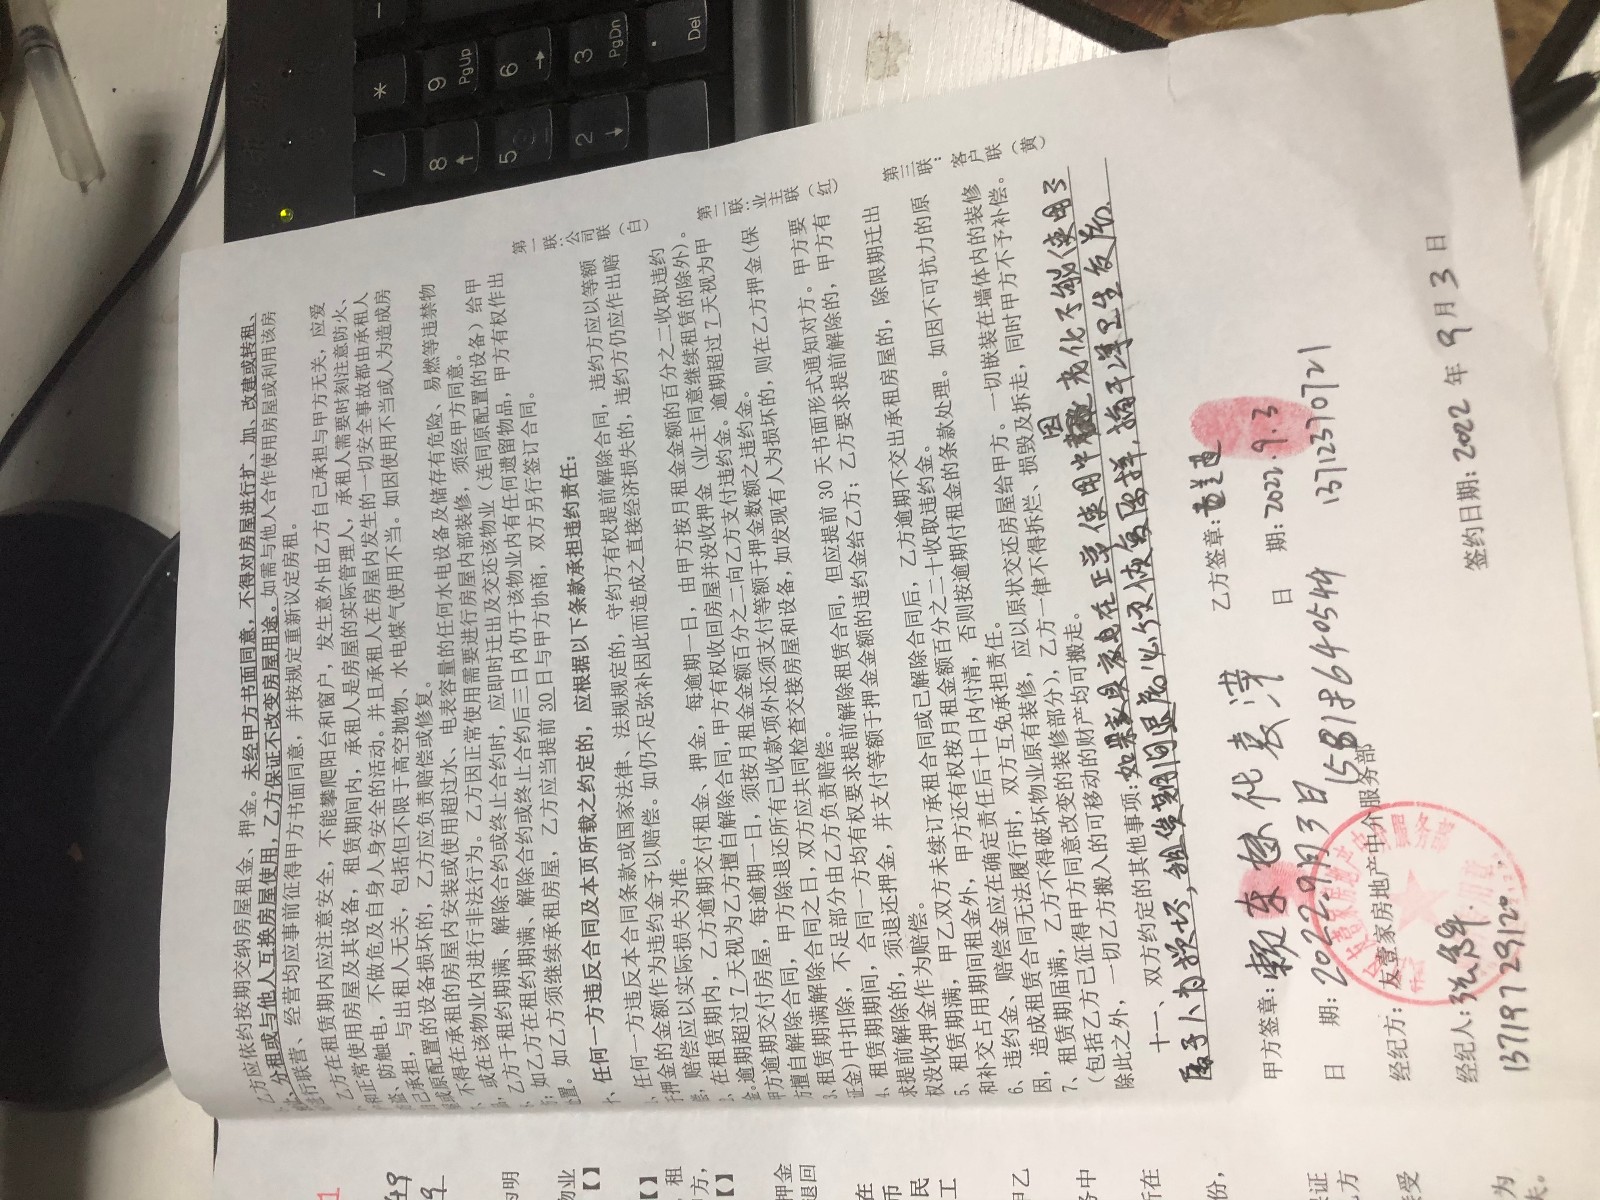 乙方应依约按期交纳房屋租金、押金。未经甲方书面同意，不得对房屋进行扩、加、改建或转租、
分租或与他人互换房屋使用，乙方保证不改变房屋用途。如需与他人合作使用房屋或利用该房
进行联营、经营均应事前征得甲方书面同意，并按规定重新议定房租。
乙方在租赁期内应注意安全，不能攀爬阳台和窗户，发生意外由乙方自己承担与甲方无关，应爱
和正常使用房屋及其设备，租赁期间内，承租人是房屋的实际管理人，承租人需要时刻注意防火、
盗、防触电，不做危及自身人身安全的活动。并且承租人在房屋内发生的一切安全事故都由承租人
己承担，与出租人无关，包括但不限于高空抛物、水电煤气使用不当。如因使用不当或人为造成房
或原配置的设备损坏的，乙方应负责赔偿或修复。
不得在承租的房屋内安装或使用超过水、电表容量的任何水电设备及储存有危险、易燃等违禁物
或在该物业内进行非法行为。乙方因正常使用需要进行房屋内部装修，须经甲方同意。
乙方于租约期满、解除合约或终止合约时，应即时迁出及交还该物业（连同原配置的设备）给甲
如乙方在租约期满、解除合约或终止合约后三日内仍于该物业内有任何遗留物品，甲方有权作出
置。如乙方须继续承租房屋，乙方应当提前30日与甲方协商，双方另行签订合同。
十、任何一方违反合同及本页所载之约定的，应根据以下条款承担违约责任：
、任何一方违反本合同条款或国家法律、法规规定的，守约方有权提前解除合同，违约方应以等额
押金的金额作为违约金予以赔偿。如仍不足弥补因此而造成之直接经济损失的，违约方仍应作出赔
偿，赔偿应以实际损失为准。
、在租赁期内，乙方逾期交付租金、押金，每逾期一日，由甲方按月租金金额的百分之二收取违约
金。逾期超过7天视为乙方擅自解除合同，甲方有权收回房屋并没收押金（业主同意继续租赁的除外）。
甲方逾期交付房屋，每逾期一日，须按月租金金额百分之二向乙方支付违约金。逾期超过7天视为甲
方擅自解除合同，甲方除退还所有已收款项外还须支付等额于押金数额之违约金。
3、租赁期满解除合同之日，双方应共同检查交接房屋和设备，如发现有人为损坏的，则在乙方押金（保
证金）中扣除，不足部分由乙方负责赔偿。
4、租赁期期间，合同一方均有权要求提前解除租赁合同，但应提前30天书面形式通知对方。甲方要
求提前解除的，须退还押金，并支付等额于押金金额的违约金给乙方；乙方要求提前解除的，甲方有
权没收押金作为赔偿。
5、租赁期满，甲乙双方未续订承租合同或已解除合同后，乙方逾期不交出承租房屋的，除限期迁出
和补交占用期间租金外，甲方还有权按月租金额百分之二十收取违约金。
6、违约金、赔偿金应在确定责任后十日内付清，否则按逾期付租金的条款处理。如因不可抗力的原
因，造成租赁合同无法履行时，双方互免承担责任。
7、租赁期届满，乙方不得破坏物业原有装修，应以原状交还房屋给甲方。一切嵌装在墙体内的装修
（包括乙方已征得甲方同意改变的装修部分），乙方一律不得拆烂、损毁及拆走，同时甲方不予补偿。
除此之外，一切乙方搬入的可移动的财产均可搬走。
十一、双方约定的其他事项：如果家具家电在正常使用中因老化不能使用了
属于人为损坏，租赁期间退房必须恢复原样，搞干净卫生交房。
甲方签章：
乙方签章：
日 期：2022.9月3日
日 期：2022.9.3
15818640544
13712370721
经纪方：友壹家房地产中介服务部
经纪人：
13719729120.
签约日期：2022年9月3日
第一联：公司联（白）
第二联：业主联（红）
第三联：客户联（黄）
/
*
8
9
PgUp
5
6
2
3
PgDn
.
Del